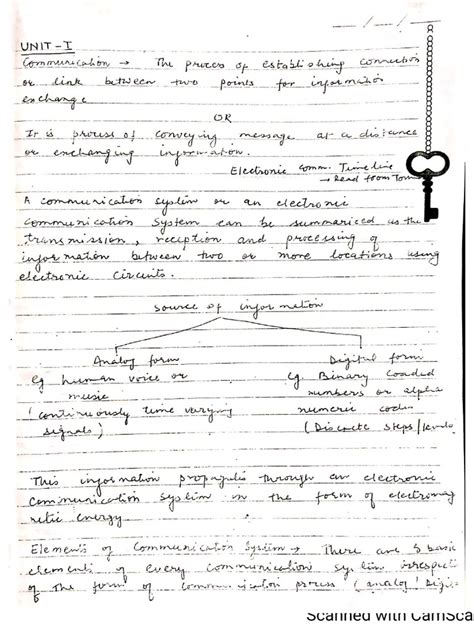 UNIT - I
Communication → The process of establishing connection
or link between two points for information
exchange
OR
It is process of conveying message at a distance
or exchanging information.
Electronic comm. Timeline
→ Read from Tom
A communication system or an electronic
communication system can be summariced as the
transmission, reception and processing of
information between two or more locations using
electronic circuits.
Source of information
Analog form
Digital form
eg human voice or
music
(continuously time varying
signals)
eg. Binary Coaded
numbers or alpha
numeric codes
(Discrete steps/levels
This information propagates through an electronic
communication system in the form of electromag
netic energy
Elements of Communication System → There are 5 basic
elements of every communication system irrespecti
of the form of communication process (analog/Digit
Scanned with CamSca